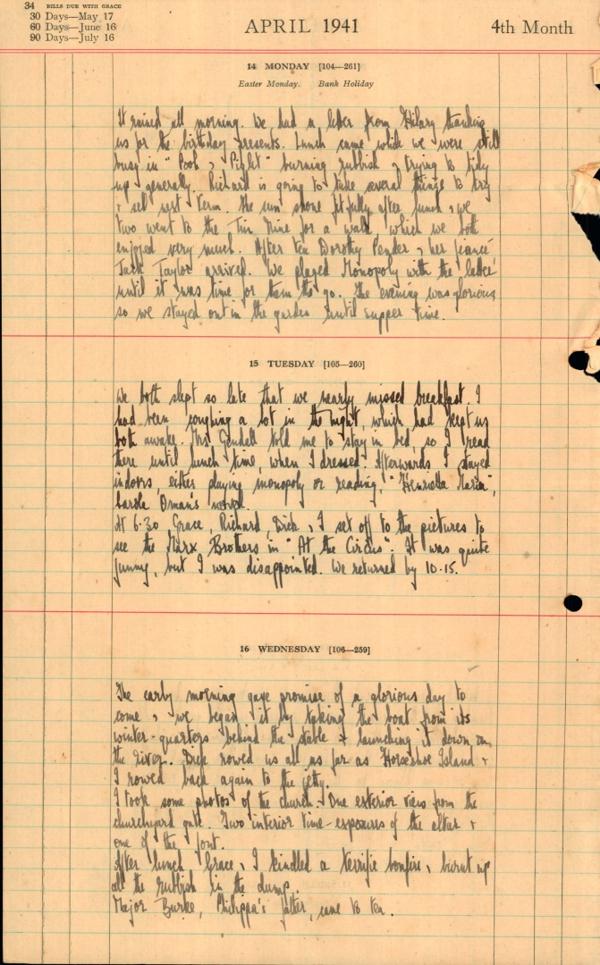 34 BILLS DUE WITH GRACE
30 Days—May 17
60 Days—June 16
90 Days—July 16
APRIL 1941
4th Month
14 MONDAY [104—261]
Easter Monday. Bank Holiday
It rained all morning. We had a letter from Hilary thanking
us for the birthday presents. Lunch came while we were still
busy in "Pooh & Piglet" burning rubbish & trying to tidy
up generally. Richard is going to take several things to try
& sell next term. The sun shone fitfully after lunch & we
two went to the Tin Mine for a walk, which we both
enjoyed very much. After tea Dorothy Pender & her fiancé
Jack Taylor arrived. We played Monopoly with the latter
until it was time for them to go. The evening was glorious
so we stayed out in the garden until supper time.
15 TUESDAY [105—260]
We both slept so late that we nearly missed breakfast. I
had been coughing a lot in the night, which had kept us
both awake. Mrs Gendell told me to stay in bed, so I read
there until lunch time, when I dressed. Afterwards I stayed
indoors, either playing monopoly or reading "Henrietta Maria",
Carola Oman's novel.
At 6.30 Grace, Richard, Dick & I set off to the pictures to
see the Marx Brothers in "At the Circus". It was quite
funny, but I was disappointed. We returned by 10.15.
16 WEDNESDAY [106—259]
The early morning gave promise of a glorious day to
come, & we began it by taking the boat from its
winter-quarters behind the stable & launching it down on
the river. Dick rowed us all as far as Horseshoe Island &
I rowed back again to the jetty.
I took some photos of the church. One exterior view from the
churchyard gate. Two interior time-exposures of the altar &
one of the font.
After lunch Grace & I kindled a terrific bonfire & burnt up
all the rubbish in the dump.
Major Burke, Philippa's father, came to tea.